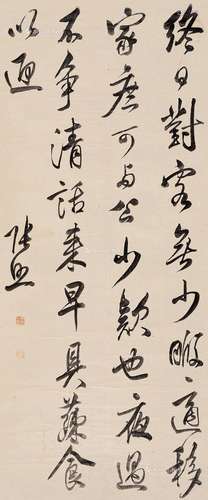 終日對客無少暇〻適移
家庶可與公少款也夜過
不爭清話來早具蔬食
以迎
張照